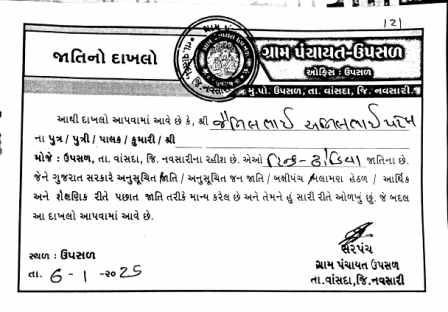 121
જાતિનો દાખલો
ગ્રામ પંચાયત-ઉપસળ
ઓફિસ : ઉપસળ
મુ.પો. ઉપસળ, તા. વાંસદા, જિ. નવસારી.
આથી દાખલો આપવામાં આવે છે કે, શ્રી
ના પુત્ર / પુત્રી / પાલક / કુમારી / શ્રી
મોજે : ઉપસળ, તા. વાંસદા, જિ. નવસારીના રહીશ છે. એઓ હિન્દુ-ઢોડિયા જાતિના છે.
જેને ગુજરાત સરકારે અનુસુચિત જાતિ / અનુસુચિત જન જાતિ / બક્ષીપંચ ભલામણ હેઠળ / આર્થિક
અને શૈક્ષણિક રીતે પછાત જાતિ તરીકે માન્ય કરેલ છે અને તેમને હું સારી રીતે ઓળખું છું. જે બદલ
આ દાખલો આપવામાં આવે છે.
સ્થળ : ઉપસળ
તા. 6 - 1 -૨૦25
સરપંચ
ગ્રામ પંચાયત ઉપસળ
તા.વાંસદા,જિ.નવસારી